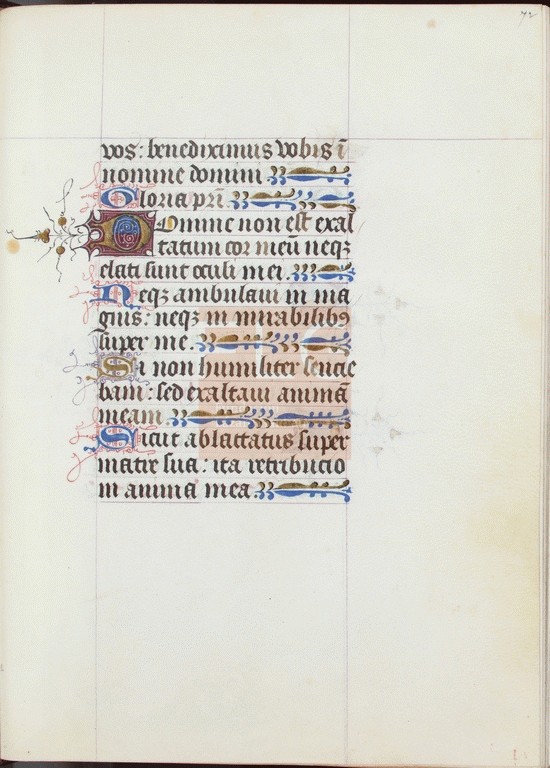 72
vos: benediximus vobis ī
nomine domini
Gloria pr̄i
Domine non est exal
tatum cor meū neqꝫ
elati sunt oculi mei.
Neqꝫ ambulaui in ma
gnis: neqꝫ in mirabilibꝰ
super me.
Si non humiliter sentie
bam: sed exaltaui animā
meam.
Sicut ablactatus super
matre sua: ita retributio
in anima mea.